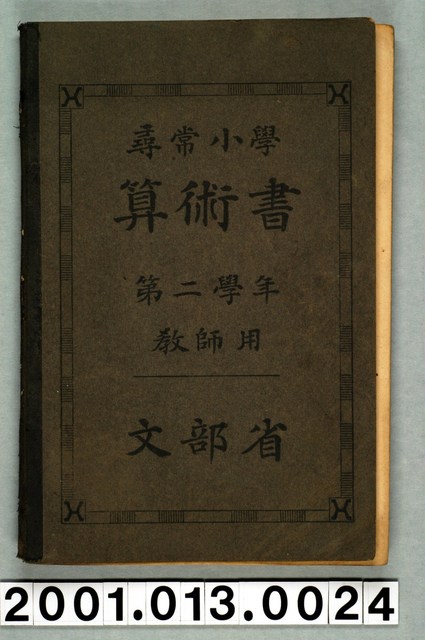 尋常小學
算術書
第二學年
教師用
文部省
2001.013.0024